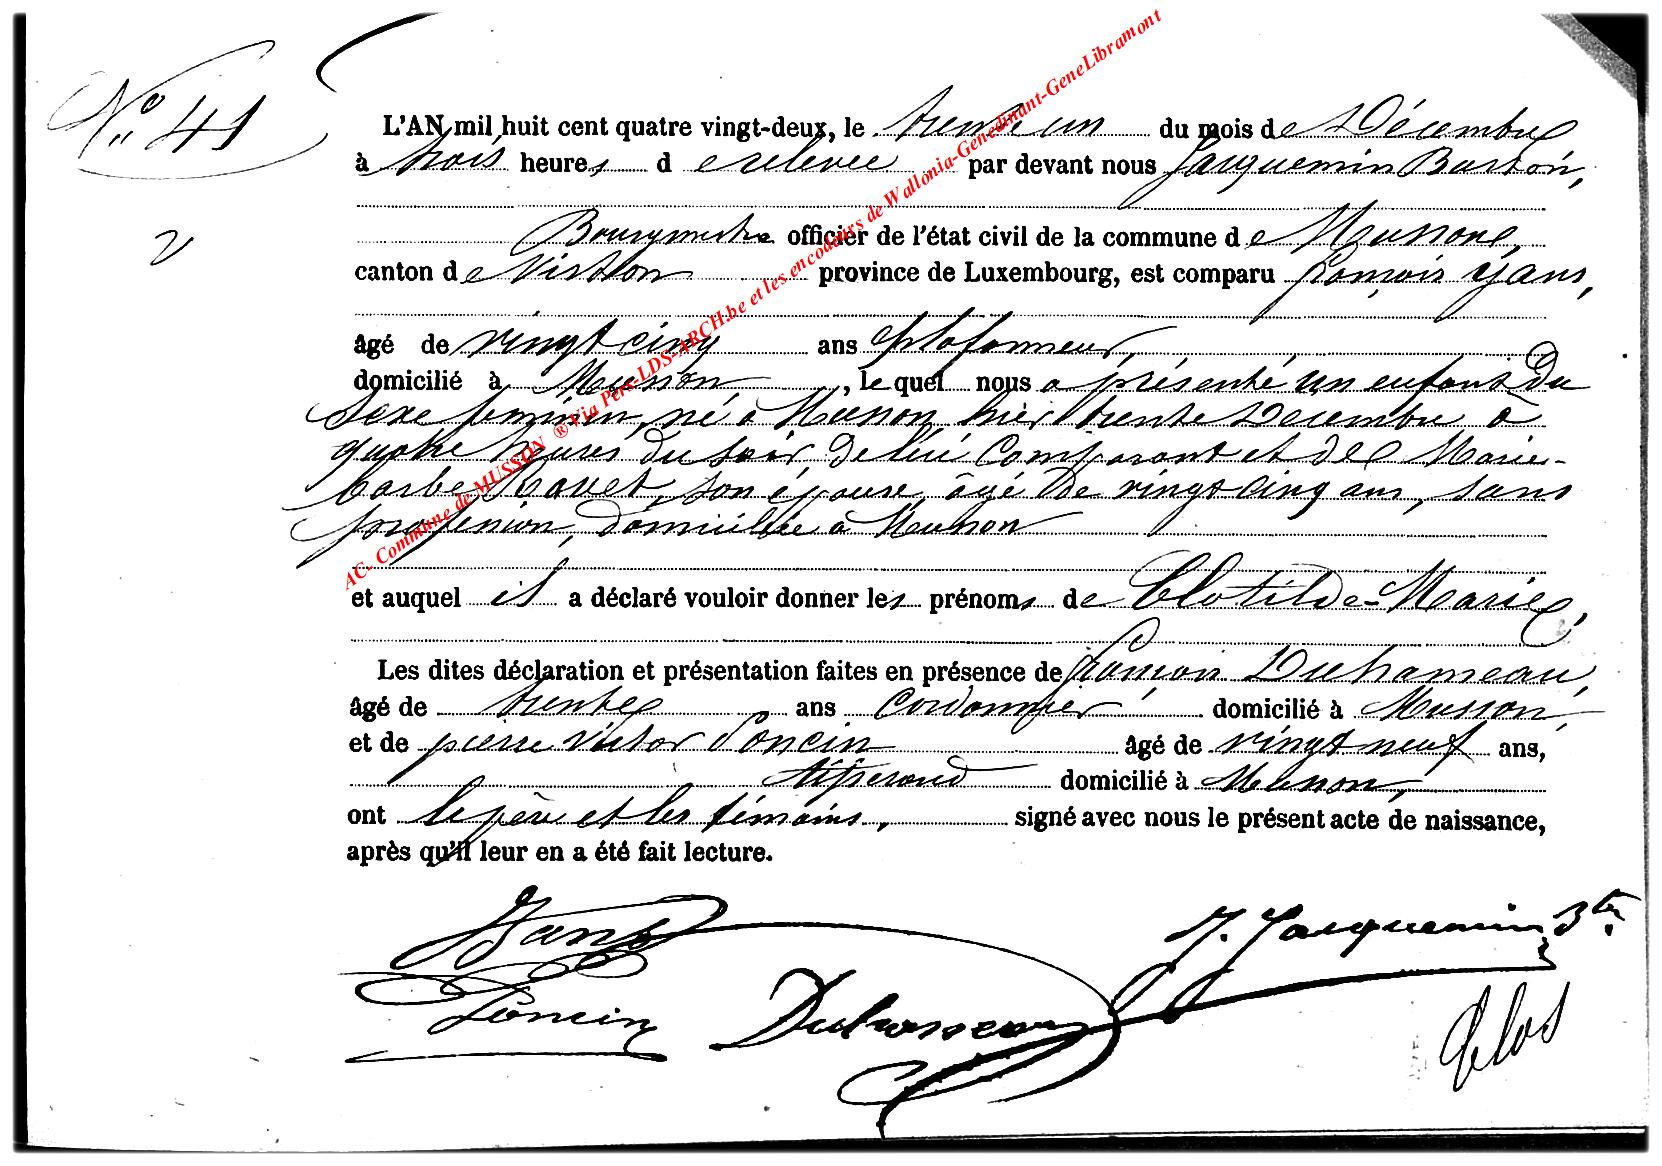 N° 41
L'AN mil huit cent quatre vingt-deux, le trente un du mois de Décembre
à trois heures de relevée par devant nous Jacquemin Baston,
Bourgmestre officier de l'état civil de la commune de Musson,
canton de Virton province de Luxembourg, est comparu françois Gans,
âgé de vingt cinq ans plafonneur,
domicilié à Musson, le quel nous a présenté un enfant du
Sexe feminin, né à Musson hier trente Decembre à
quatre heures du soir, de lui Comparant et de Marie-
barbe, son épouse, âgé de vingt cinq ans, sans
profession, domiciliée à Musson
et auquel il a déclaré vouloir donner les prénoms de Clotilde-Marie,
Les dites déclaration et présentation faites en présence de françois Duhameau,
âgé de trente ans Cordonnier domicilié à Musson,
et de pierre Victor Poncin âgé de vingt neuf ans,
domicilié à Musson,
ont le père et les témoins, signé avec nous le présent acte de naissance,
après qu'il leur en a été fait lecture.
J. Jacquemin Btn.
Poncin
Duhameau
Clos
AC- Commune de MUSSON ® Via Père-LDS-ARCH.be et les encodeurs de Wallonia-Genedinant-GeneLibramont